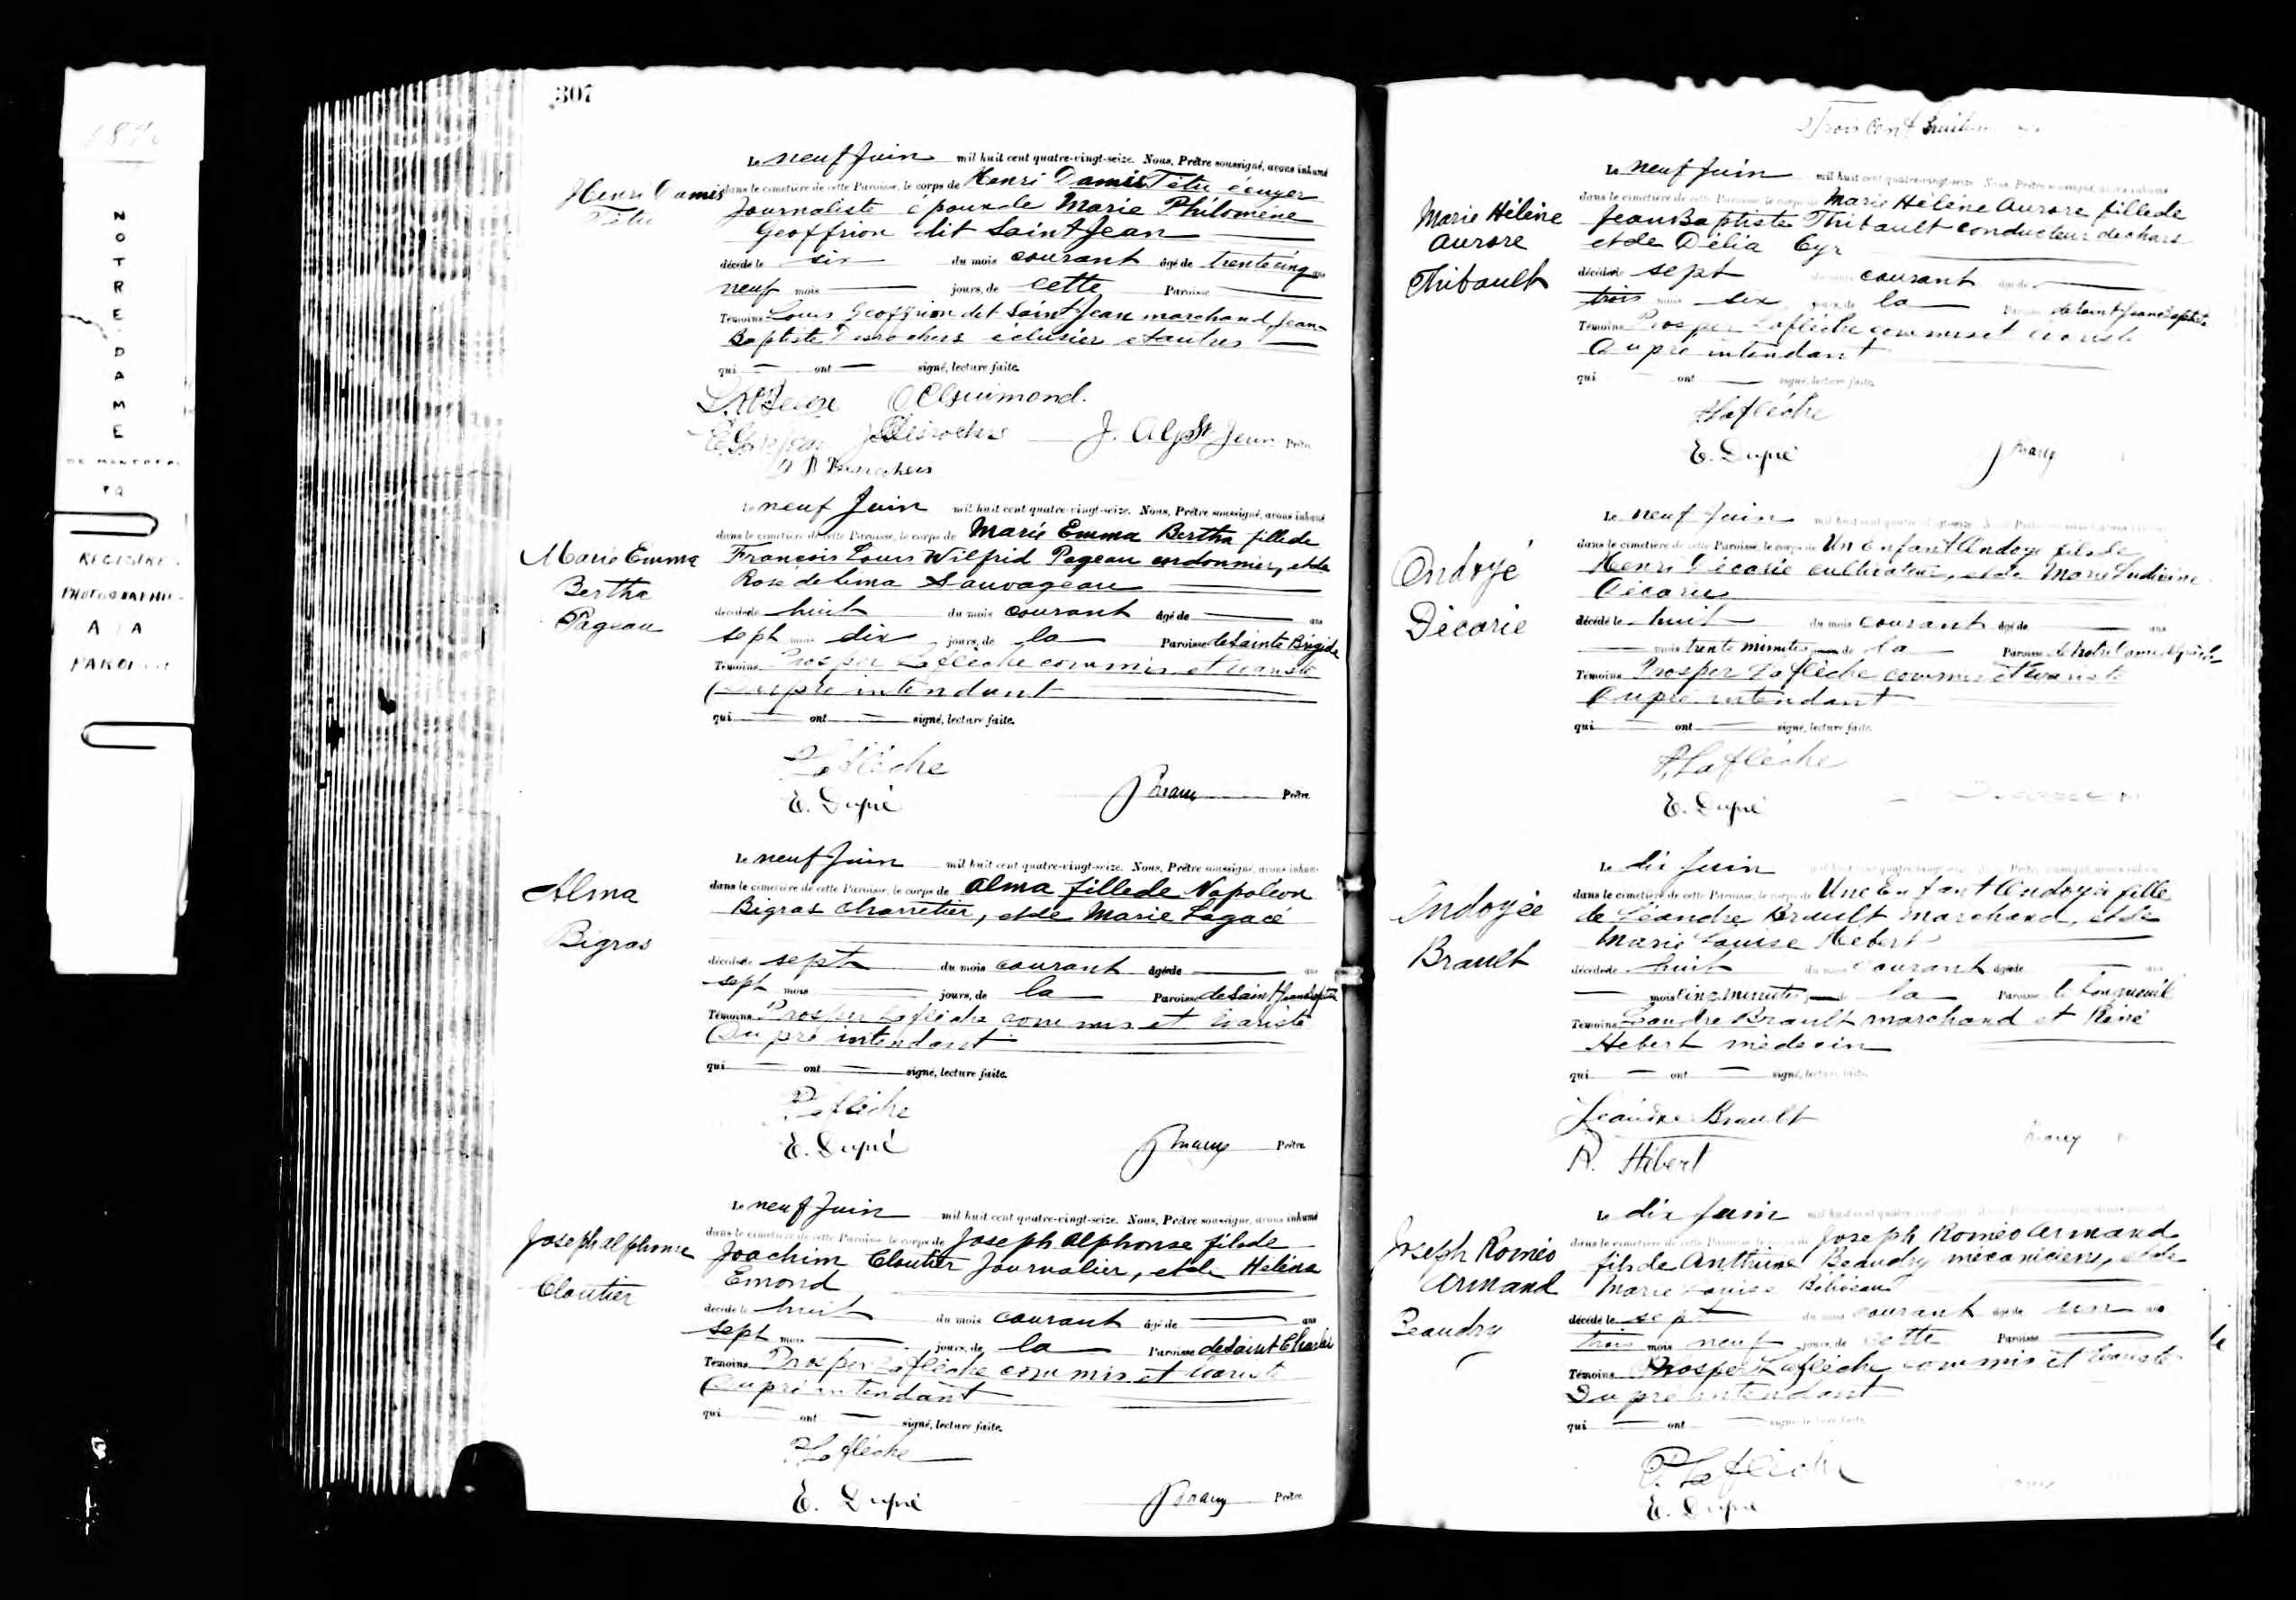 NOTRE DAME
REGISTRE
A LA
307
Le neuf Juin mil huit cent quatre-vingt-seize. Nous, Prêtre soussigné, avons inhumé
Henri Damis
Tétu
dans le cimetière de cette Paroisse, le corps de Henri Damis Tétu écuyer
Journaliste époux de Marie Philomène
Geoffrion dit Saint Jean
décédé le six du mois courant âgé de trente cinq ans
neuf mois jours, de cette Paroisse
Témoins Louis Geoffrion dit Saint Jean marchand, Jean-
Baptiste Desrochers éclusier et autres
qui ont signé, lecture faite.
J. Alp St Jean Prêtre
Le neuf Juin mil huit cent quatre-vingt-seize. Nous, Prêtre soussigné, avons inhumé
Marie Emma
Bertha
Pageau
dans le cimetière de cette Paroisse, le corps de Marie Emma Bertha fille de
François Louis Wilfrid Pageau cordonnier, et de
Rose de Lima Sauvageau
décédée le huit du mois courant âgé de ans
sept mois dix jours, de la Paroisse de Sainte Brigide
Témoins Prosper Laflèche commis et Evariste
Dupré intendant
qui ont signé, lecture faite.
P. Laflèche
E. Dupré
Prêtre
Le neuf Juin mil huit cent quatre-vingt-seize. Nous, Prêtre soussigné, avons inhumé
Alma
Bigras
dans le cimetière de cette Paroisse, le corps de Alma fille de Napoléon
Bigras charretier, et de Marie Lagacé
décédée sept du mois courant âgée de ans
sept mois jours, de la Paroisse de Saint Jean Baptiste
Témoins Prosper Laflèche commis et Evariste
Dupré intendant
qui ont signé, lecture faite.
P. Laflèche
E. Dupré
Prêtre
Le neuf Juin mil huit cent quatre-vingt-seize. Nous, Prêtre soussigné, avons inhumé
Joseph Alphonse
Cloutier
dans le cimetière de cette Paroisse, le corps de Joseph Alphonse fils de
Joachim Cloutier Journalier, et de Hélèna
Emond
décédé le huit du mois courant âgé de ans
sept mois jours, de la Paroisse de Saint Charles
Témoins Prosper Laflèche commis et Evariste
Dupré intendant
qui ont signé, lecture faite.
P. Laflèche
E. Dupré
Prêtre
Trois Cent
Le neuf Juin mil huit cent quatre-vingt-seize
Marie Hélène
Aurore
Thibault
dans le cimetière de cette Paroisse, le corps de Marie Hélène Aurore fille de
Jean Baptiste Thibault conducteur de chars
et de Délia Cyr
décédée sept du mois courant âgé de
trois mois six jours, de la Paroisse de Saint Jean Baptiste
Témoins Prosper Laflèche commis et Evariste
Dupré intendant
qui ont signé, lecture faite.
P. Laflèche
E. Dupré
Le neuf Juin
Ondoyé
Décarie
dans le cimetière de cette Paroisse, le corps de Un Enfant Ondoyé fils de
Henri Décarie cultivateur, et de Marie
Décarie
décédé le huit du mois courant âgé de ans
mois trente minutes de la Paroisse de Notre Dame de
Témoins Prosper Laflèche commis et Evariste
Dupré intendant
qui ont signé, lecture faite.
P. Laflèche
E. Dupré
Le dix Juin
Ondoyée
Brault
dans le cimetière de cette Paroisse, le corps de Une Enfant Ondoyée fille
de Léandre Brault marchand, et de
Marie Louise Hebert
décédée huit du mois courant âgée de ans
mois cinq minutes de la Paroisse de Longueuil
Témoins Léandre Brault marchand et René
Hebert médecin
qui ont signé, lecture faite.
Léandre Brault
R. Hébert
Le dix Juin
Joseph Roméo
Armand
Beaudry
dans le cimetière de cette Paroisse, le corps de Joseph Roméo Armand
fils de Anthime Beaudry mécanicien, et de
Marie Louise Béliveau
décédé le sept du mois courant âgé de un an
trois mois neuf jours, de cette Paroisse
Témoins Prosper Laflèche commis et Evariste
Dupré intendant
qui ont signé, lecture faite.
P. Laflèche
E. Dupré